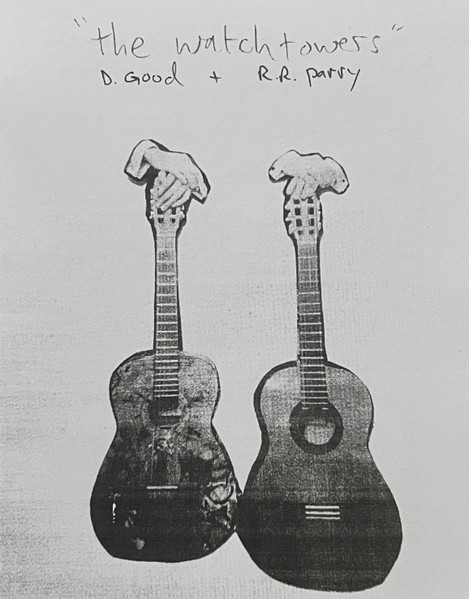 "the watchtowers"
D. Good + R.R. parry